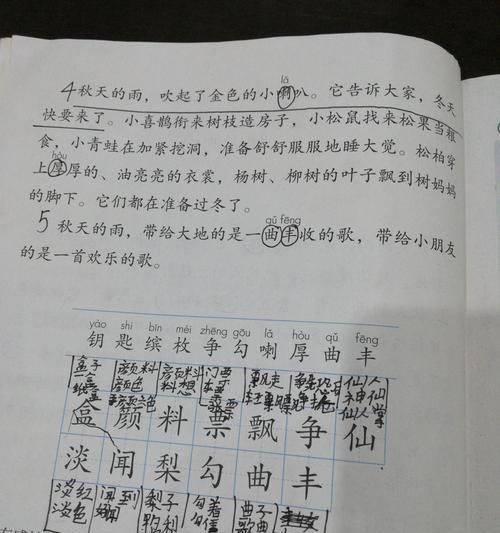 lǎ
4 秋天的雨，吹起了金色的小喇叭。它告诉大家，冬天
快要来了。小喜鹊衔来树枝造房子，小松鼠找来松果当粮
食，小青蛙在加紧挖洞，准备舒舒服服地睡大觉。松柏穿
hòu
上厚厚的、油亮亮的衣裳，杨树、柳树的叶子飘到树妈妈
的脚下。它们都在准备过冬了。
qǔ fēng
5 秋天的雨，带给大地的是一曲丰收的歌，带给小朋友
的是一首欢乐的歌。
yào shi bīn méi zhēng gōu lǎ hòu qǔ fēng
钥 匙 缤 枚 争 勾 喇 厚 曲 丰
盒子 颜料 料 门票
颜色 料想 车票
盒 颜 料 票 飘 争 仙
淡 闻 梨 勾 曲 丰
淡红 闻到 梨子
淡色 勾着 歌曲